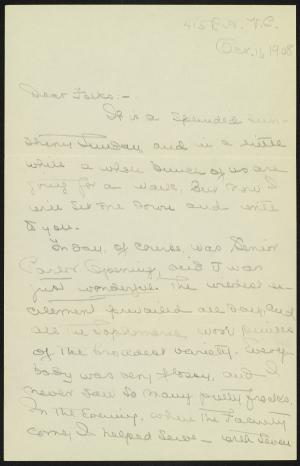 Nov. 1, 1908
Dear Folks:-
It is a splendid sun-
shiny Sunday, and in a little
while a whole bunch of us are
going for a walk. But now I
will sit me down and write
to you.
of course, was Senior
Parlor Opening, and it was
just wonderful. The wildest ex-
citement prevailed all day, and
all the Sophomores wore
of the broadest variety. Every-
body was very flossy, and I
never saw so many pretty frocks.
In the Evening, when the Faculty
come, I helped serve - with seven